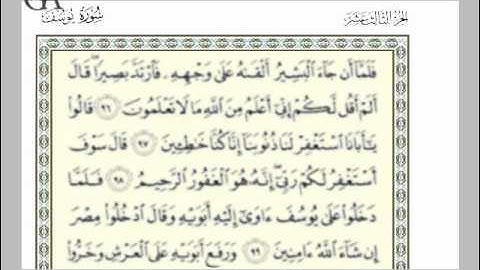 سُورَةُ يُوسُفَ
الجزء الثالث عشر
فَلَمَّآ أَن جَآءَ ٱلْبَشِيرُ أَلْقَىٰهُ عَلَىٰ وَجْهِهِۦ فَٱرْتَدَّ بَصِيرًا ۖ قَالَ
أَلَمْ أَقُل لَّكُمْ إِنِّىٓ أَعْلَمُ مِنَ ٱللَّهِ مَا لَا تَعْلَمُونَ ٩٦ قَالُوا۟
يَـٰٓأَبَانَا ٱسْتَغْفِرْ لَنَا ذُنُوبَنَآ إِنَّا كُنَّا خَـٰطِـِٔينَ ٩٧ قَالَ سَوْفَ
أَسْتَغْفِرُ لَكُمْ رَبِّىٓ ۖ إِنَّهُۥ هُوَ ٱلْغَفُورُ ٱلرَّحِيمُ ٩٨ فَلَمَّا
دَخَلُوا۟ عَلَىٰ يُوسُفَ ءَاوَىٰٓ إِلَيْهِ أَبَوَيْهِ وَقَالَ ٱدْخُلُوا۟ مِصْرَ
إِن شَآءَ ٱللَّهُ ءَامِنِينَ ٩٩ وَرَفَعَ أَبَوَيْهِ عَلَى ٱلْعَرْشِ وَخَرُّوا۟